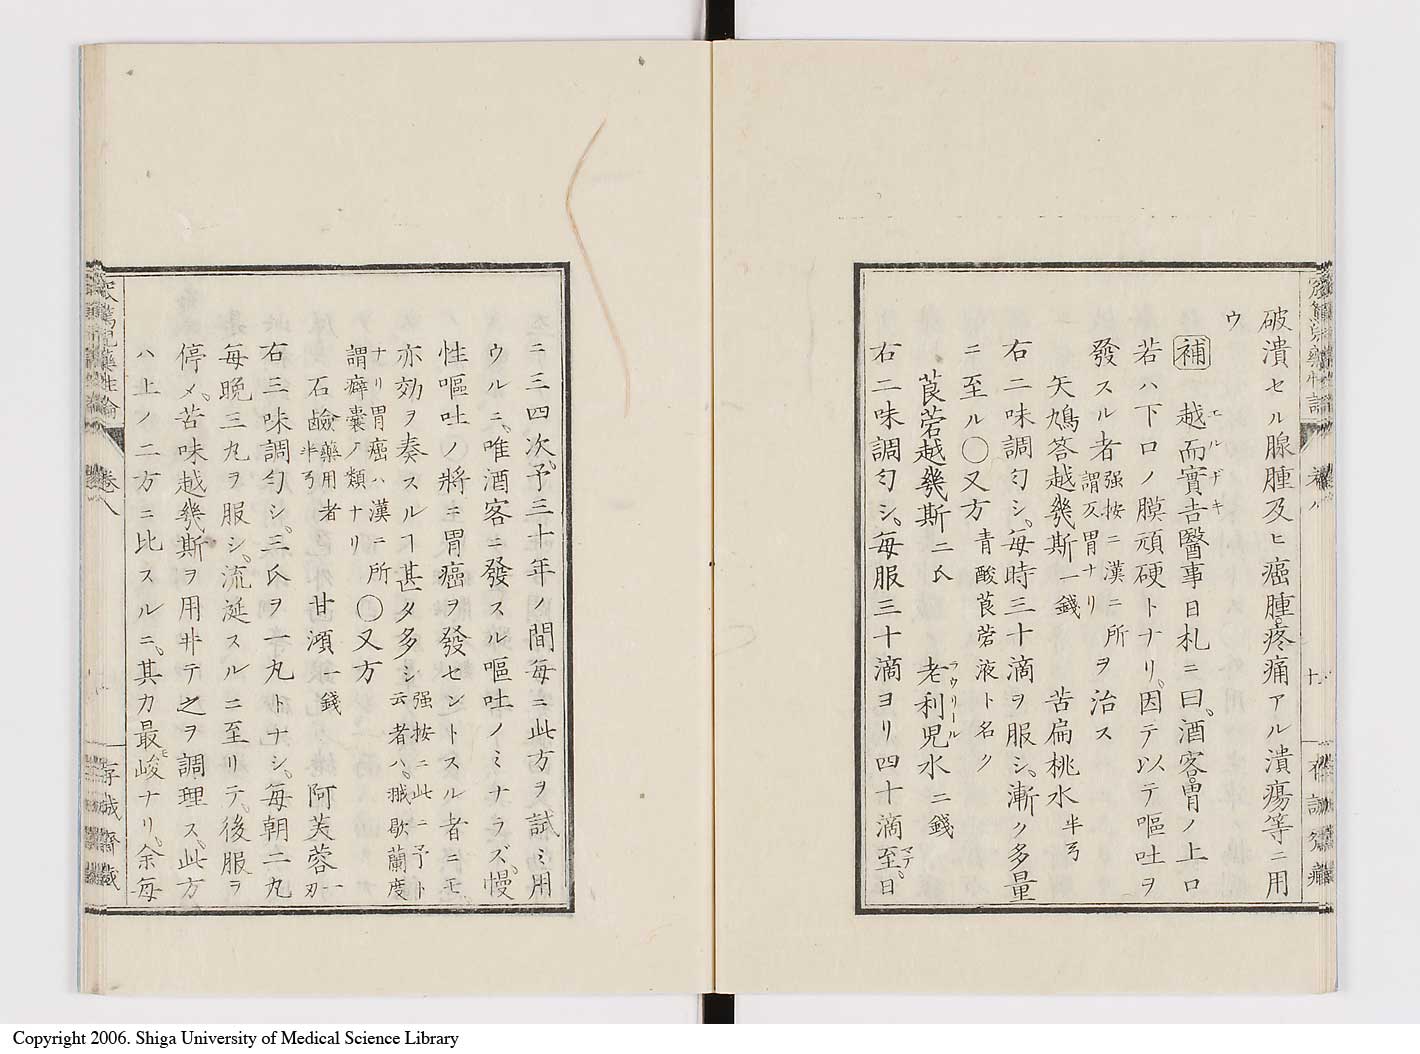 破潰セル腺腫及ヒ癌腫疼痛アル潰瘍等ニ用
ウ
補 越而實吉醫事日札ニ曰。酒客胃ノ上口
エルデキ
若ハ下口ノ膜頑硬トナリ。因テ以テ嘔吐ヲ
發スル者 强按ニ漢ニ所謂反胃ナリ ヲ治ス
矢鳩答越幾斯 一錢 苦扁桃水 半弓
右二味調勻シ。毎時三十滴ヲ服シ。漸ク多量
ニ至ル〇又方 青酸莨菪液ト名ク
莨菪越幾斯 二氏 老利児水 二錢
ラウリール
右二味調勻シ。毎服三十滴ヨリ四十滴至。日
マデ
ニ三四次。予三十年ノ間毎ニ此方ヲ試ミ用
ウルニ。唯酒客ニ發スル嘔吐ノミナラズ。慢
性嘔吐ノ將ニ胃癌ヲ發セントスル者ニモ
亦効ヲ奏スルヿ甚タ多シ 强按ニ此ニ予ト云者ハ。戕歇蘭度
ナリ胃癌ハ漢ニ所謂癖嚢ノ類ナリ 〇又方
石鹼 藥用者半弓 甘澒 一錢 阿芙蓉 一刃
右三味調勻シ。三氏ヲ一丸トナシ。毎朝二丸
毎晩三丸ヲ服シ。流涎スルニ至リテ。後服ヲ
停メ。苦味越幾斯ヲ用井テ之ヲ調理ス。此方
ハ上ノ二方ニ比スルニ。其力最峻ナリ。余毎
モ
卷八
存誠齋藏